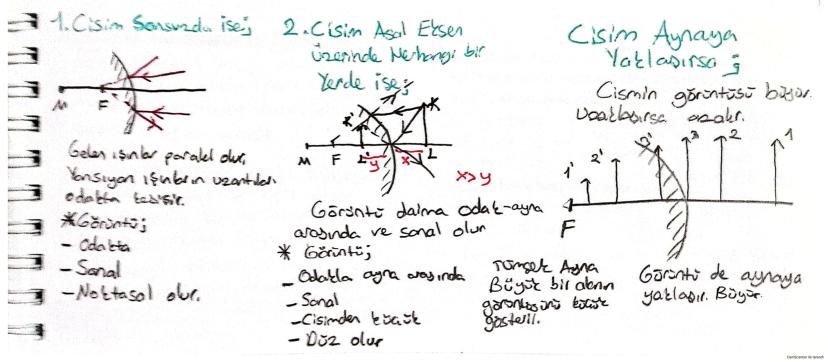 1. Cisim Sonsuzda ise;
M
F
Gelen ışınlar paralel olur.
Yansıyan ışınların uzantıları
odakta kesişir.
* Görüntü;
- Odakta
- Sanal
- Noktasal olur.
2. Cisim Asal Eksen
üzerinde Herhangi bir
Yerde ise;
K
K'
M F L' y x L
x>y
Görüntü daima odak-ayna
arasında ve sanal olur
* Görüntü;
- Odakla ayna arasında
- Sanal
- Cisimden küçük
- Düz olur
Tümsek Ayna
Büyük bir alanın
görüntüsünü küçük
gösterir.
Cisim Aynaya
Yaklaşırsa;
Cismin görüntüsü büyür.
Uzaklaşırsa azalır.
1' 2' 3' 3 2 1
F
Görüntü de aynaya
yaklaşır. Büyür.